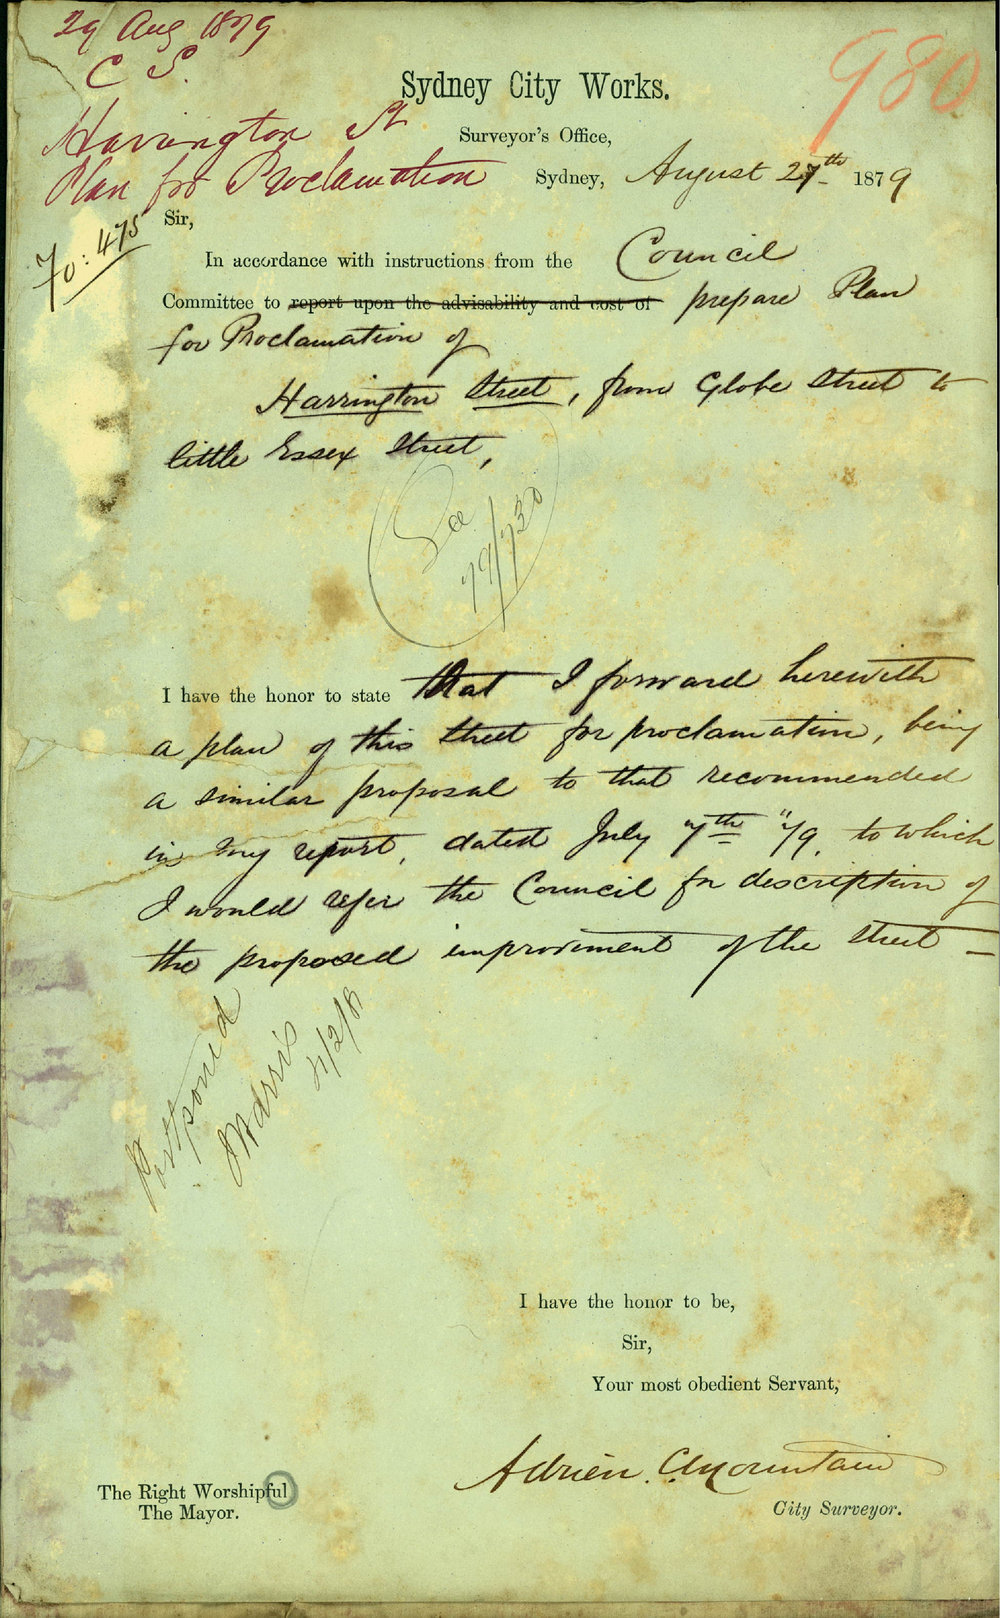 29 Aug 1879
C S.
Harrington St
Plan for Proclamation
980
70:475
Sydney City Works.
Surveyor's Office,
Sydney, August 27th 1879
Sir,
In accordance with instructions from the Council
Committee to report upon the advisability and cost of prepare Plan
for Proclamation of
Harrington Street, from Globe Street to
little Essex Street,
See
79/730
I have the honor to state that I forward herewith
a plan of this Street for proclamation, being
a similar proposal to that recommended
in my report, dated July 7th "/79, to which
I would refer the Council for description of
the proposed improvement of the Street —
Postponed
4/2/81
I have the honor to be,
Sir,
Your most obedient Servant,
Adrien C Mountain
City Surveyor.
The Right Worshipful
The Mayor.